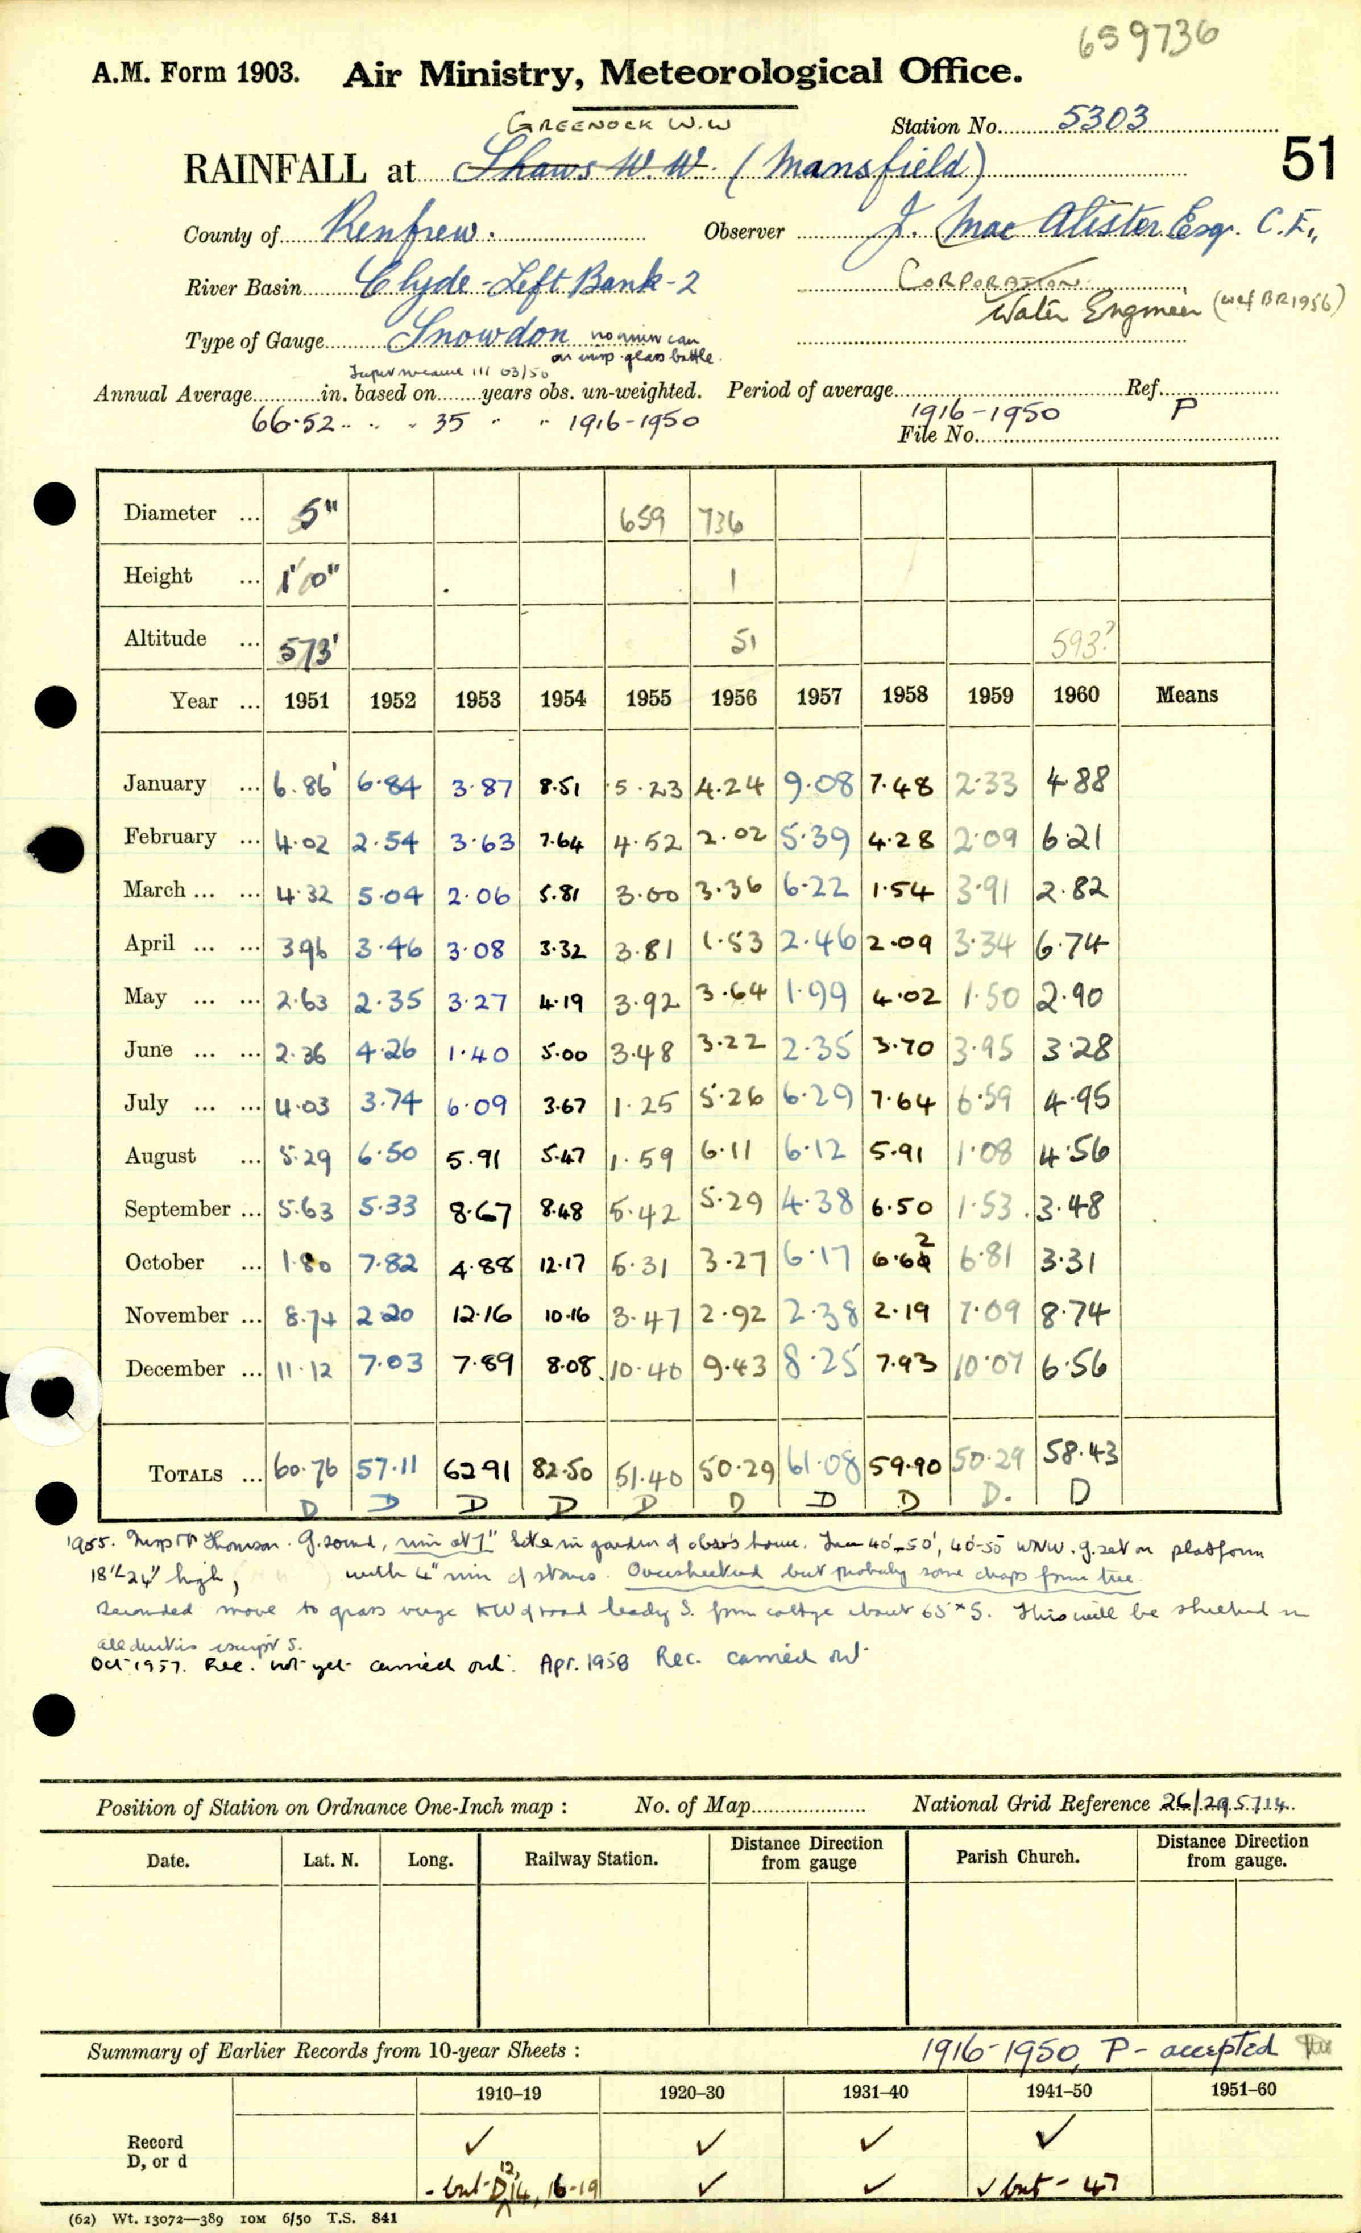 659736
A.M. Form 1903. Air Ministry, Meteorological Office.
GREENOCK W.W
Station No. 5303
RAINFALL at Shaws W.W. (Mansfield)
51
County of Renfrew. Observer J. MacAlister Esqr. C.E.,
River Basin Clyde-Left Bank-2 CORPORATION
Water Engineer (wef BR1956)
Type of Gauge Snowdon no inner can
or insp. glass bottle.
03/50
Annual Average in. based on years obs. un-weighted. Period of average Ref.
66.52 .. .. 35 " " 1916-1950 1916-1950 P
File No.
Diameter ... 5" 659 736
Height ... 1'0" 1
Altitude ... 573' 51 593?
Year ... 1951 1952 1953 1954 1955 1956 1957 1958 1959 1960 Means
January ... 6.86 6.84 3.87 8.51 5.23 4.24 9.08 7.48 2.33 4.88
February ... 4.02 2.54 3.63 7.64 4.52 2.02 5.39 4.28 2.09 6.21
March ... ... 4.32 5.04 2.06 5.81 3.00 3.36 6.22 1.54 3.91 2.82
April ... ... 3.96 3.46 3.08 3.32 3.81 1.53 2.46 2.09 3.34 6.74
May ... ... 2.63 2.35 3.27 4.19 3.92 3.64 1.99 4.02 1.50 2.90
June ... ... 2.36 4.26 1.40 5.00 3.48 3.22 2.35 3.70 3.95 3.28
July ... ... 4.03 3.74 6.09 3.67 1.25 5.26 6.29 7.64 6.59 4.95
August ... 5.29 6.50 5.91 5.47 1.59 6.11 6.12 5.91 1.08 4.56
September ... 5.63 5.33 8.67 8.48 5.42 5.29 4.38 6.50 1.53 3.48
October ... 1.80 7.82 4.88 12.17 5.31 3.27 6.17 6.62 6.81 3.31
November ... 8.74 2.20 12.16 10.16 3.47 2.92 2.38 2.19 7.09 8.74
December ... 11.12 7.03 7.89 8.08 10.40 9.43 8.25 7.93 10.07 6.56
TOTALS ... 60.76 57.11 62.91 82.50 51.40 50.29 61.08 59.90 50.29 58.43
D D D D D D D D D. D
1955. Insp Mr Thomson. G. sound, rim at 1" Site in garden of obsr's house. 40'-50', 40'-50 WNW. g. set on platform
18"-24" high, with 4" rim of stones. Oversheltered but probably some drops from tree.
move to grass verge of road S. from cottage about 65 S. This will be sheltered in
all except S.
Oct 1957. Rec. not yet carried out. Apr. 1958 Rec. carried out.
Position of Station on Ordnance One-Inch map : No. of Map National Grid Reference 26/295714
Date. Lat. N. Long. Railway Station. Distance Direction from gauge Parish Church. Distance Direction from gauge.
Summary of Earlier Records from 10-year Sheets : 1916-1950, P - accepted
1910-19 1920-30 1931-40 1941-50 1951-60
Record ✓ ✓ ✓ ✓
D, or d - but D 12, 14, 16-19 ✓ ✓ ✓ but - 47
(62) Wt. 13072—389 10M 6/50 T.S. 841